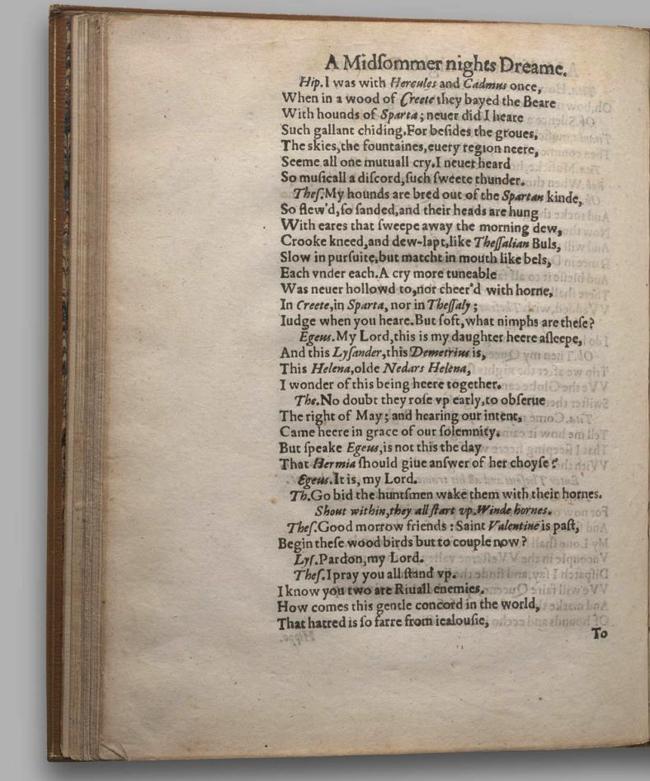 A Midſommer nights Dreame.
Hip. I was with Hercules and Cadmus once,
When in a wood of Creete they bayed the Beare
With hounds of Sparta; neuer did I heare
Such gallant chiding. For beſides the groues,
The skies, the fountaines, euery region neere,
Seeme all one mutuall cry. I neuer heard
So muſicall a diſcord, ſuch ſweete thunder.
Theſ. My hounds are bred out of the Spartan kinde,
So flew'd, ſo ſanded, and their heads are hung
With eares that ſweepe away the morning dew,
Crooke kneed, and dew-lapt, like Theſſalian Buls,
Slow in purſuite, but matcht in mouth like bels,
Each vnder each. A cry more tuneable
Was neuer hollowd to, nor cheer'd with horne,
In Creete, in Sparta, nor in Theſſaly;
Iudge when you heare. But ſoft, what nimphs are theſe?
Egeus. My Lord, this is my daughter heere aſleepe,
And this Lyſander, this Demetrius is,
This Helena, olde Nedars Helena,
I wonder of this being heere together.
The. No doubt they roſe vp early, to obſerue
The right of May; and hearing our intent,
Came heere in grace of our ſolemnity.
But ſpeake Egeus, is not this the day
That Hermia ſhould giue anſwer of her choyſe?
Egeus. It is, my Lord.
Th. Go bid the huntſmen wake them with their hornes.
Shout within, they all ſtart vp. Winde hornes.
Theſ. Good morrow friends: Saint Valentine is paſt,
Begin theſe wood birds but to couple now?
Lyſ. Pardon, my Lord.
Theſ. I pray you all ſtand vp.
I know you two are Riuall enemies.
How comes this gentle concord in the world,
That hatred is ſo farre from iealouſie,
To